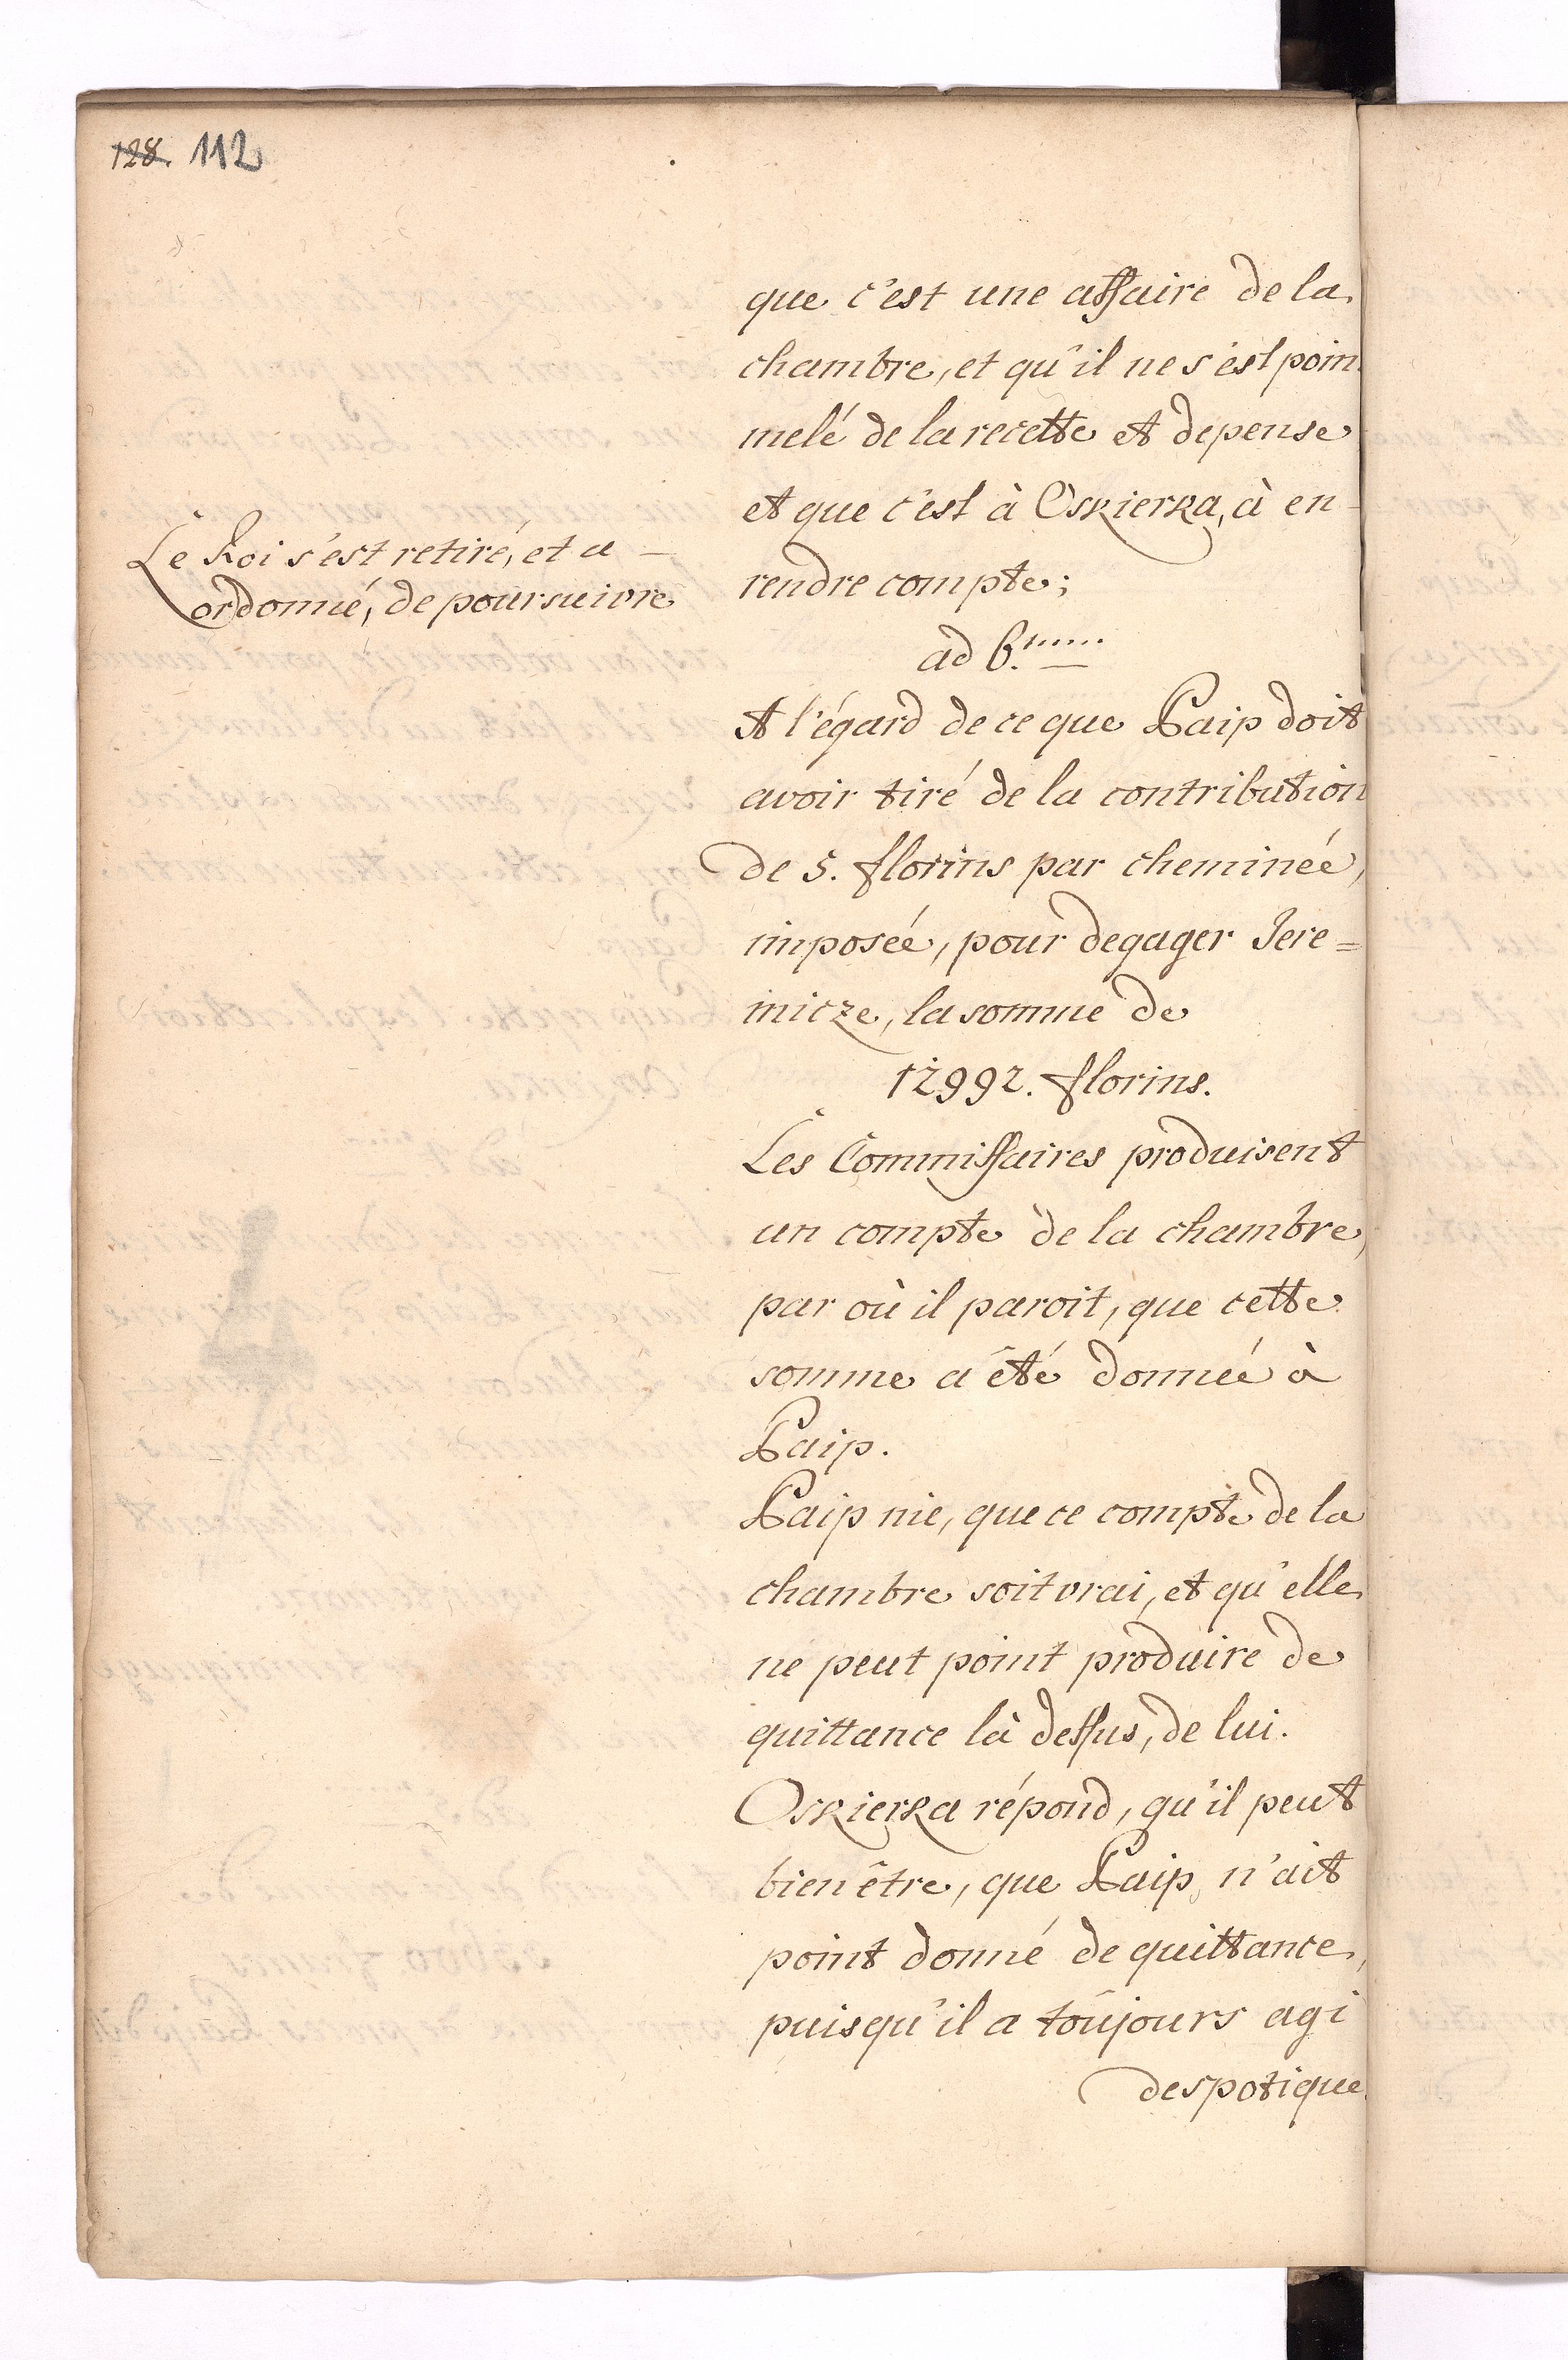 128. 112
que c'est une affaire de la
chambre, et qu'il ne s'est poin
melé de la recette et depense
et que c'est à Oskierka, à en
Le Roi s'est retiré, et a —
ordonné, de poursuivre
rendre compte;
ad 6.
A l'égard de ce que Paip doit
avoir tiré de la contribution
de 5. florins par cheminée,
imposée, pour degager Jere=
micze, la somme de
12992. florins.
Les Commissaires produisent
un compte de la chambre,
par où il paroit, que cette
somme a été donnée à
Paip.
Paip nie, que ce compte de la
chambre soit vrai, et qu'elle
ne peut point produire de
quittance là dessus, de lui.
Oskierka répond, qu'il peut
bien être, que Paip n'ait
point donné de quittance,
puisqu'il a toûjours agi
despotique